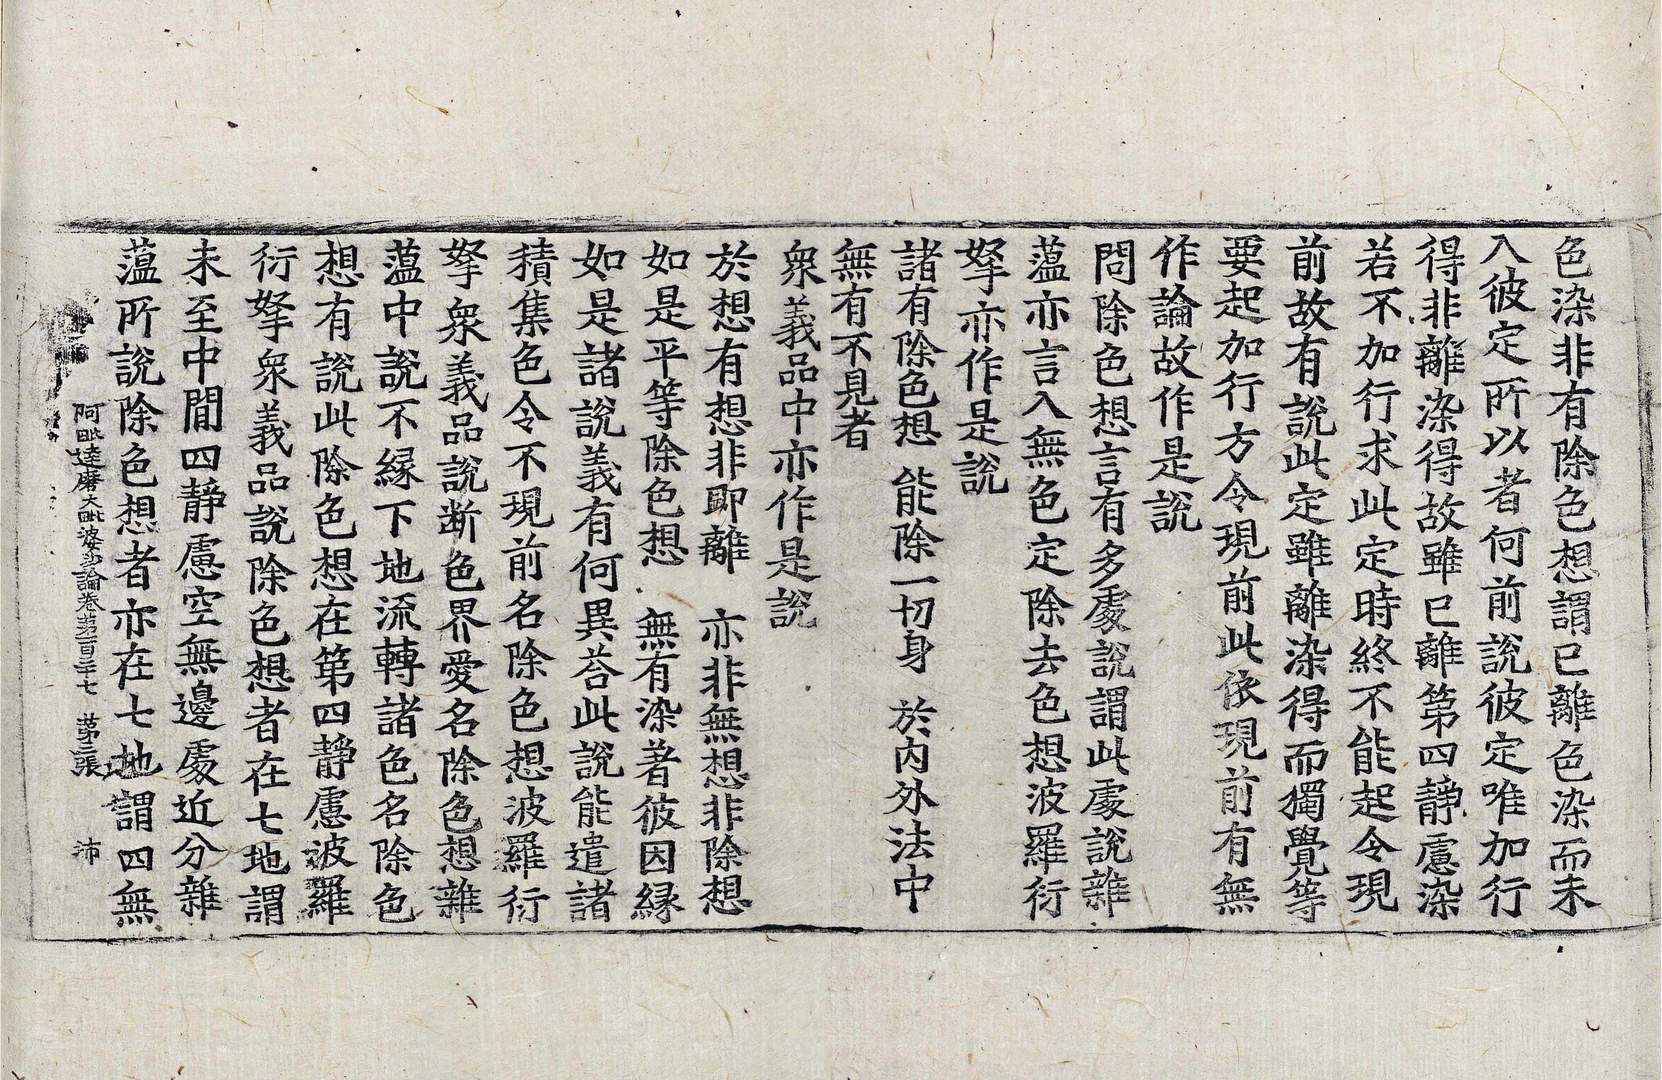 色染非有除色想謂已離色染而未
入彼定所以者何前說彼定唯加行
得非離染得故雖已離第四靜慮染
若不加行求此定時終不能起令現
前故有說此定雖離染得而獨覺等
要起加行方令現前此依現前有無
作論故作是說
問除色想言有多處說謂此處說雜
薀亦言入無色定除去色想波羅衍
拏亦作是說
諸有除色想 能除一切身 於內外法中
無有不見者
衆義品中亦作是說
於想有想非即離 亦非無想非除想
如是平等除色想 無有染著彼因緣
如是諸說義有何異荅此說能遣諸
積集色令不現前名除色想波羅衍
拏衆義品說断色界愛名除色想雜
薀中說不緣下地流轉諸色名除色
想有說此除色想在第四靜慮波羅
衍拏衆義品說除色想者在七地謂
未至中閒四靜慮空無邊處近分雜
薀所說除色想者亦在七地謂四無
阿毗達磨大毗婆沙論卷第一百三十七 第三張 沛